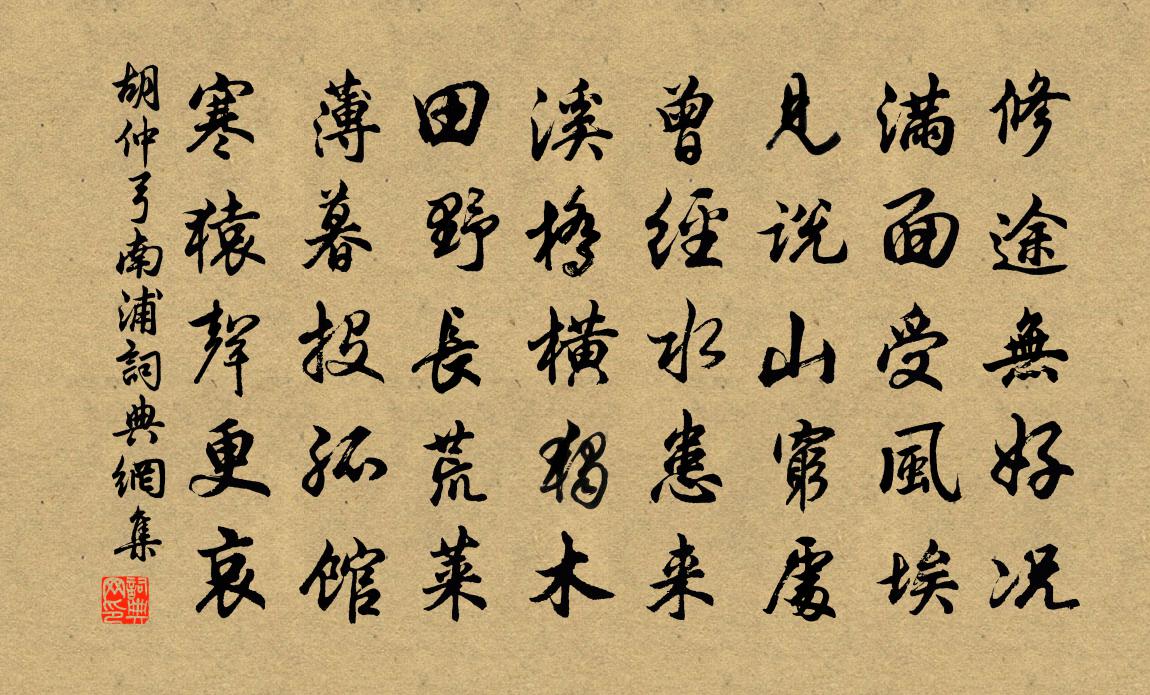 修途無好况
滿面受風埃
見說山窮處
曾經水患来
溪橋橫獨木
田野長荒萊
薄暮投孤館
寒猿聲更哀
胡仲弓南浦詞典網集
詞典網印